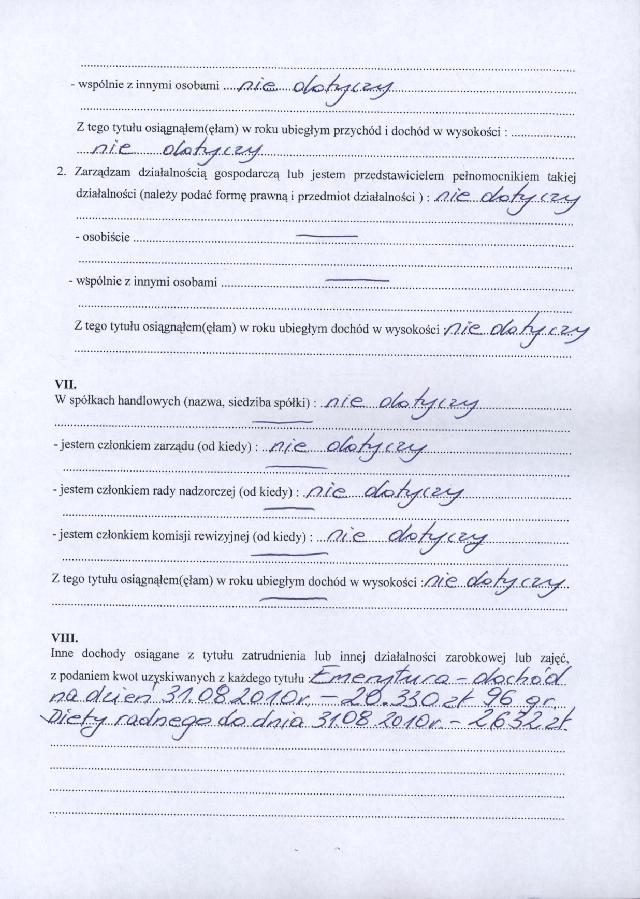 - wspólnie z innymi osobami ....nie dotyczy
Z tego tytułu osiągnąłem(ęłam) w roku ubiegłym przychód i dochód w wysokości : ...................
nie dotyczy
2. Zarządzam działalnością gospodarczą lub jestem przedstawicielem pełnomocnikiem takiej
działalności (należy podać formę prawną i przedmiot działalności ) : nie dotyczy
- osobiście
- wspólnie z innymi osobami
Z tego tytułu osiągnąłem(ęłam) w roku ubiegłym dochód w wysokości : nie dotyczy
VII.
W spółkach handlowych (nazwa, siedziba spółki) : nie dotyczy
- jestem członkiem zarządu (od kiedy) : nie dotyczy
- jestem członkiem rady nadzorczej (od kiedy) : nie dotyczy
- jestem członkiem komisji rewizyjnej (od kiedy) : nie dotyczy
Z tego tytułu osiągnąłem(ęłam) w roku ubiegłym dochód w wysokości : nie dotyczy
VIII.
Inne dochody osiągane z tytułu zatrudnienia lub innej działalności zarobkowej lub zajęć,
z podaniem kwot uzyskiwanych z każdego tytułu Emerytura - dochód
na dzień 31.08.2010r. - 20.330 zł 96 gr.
Diety radnego do dnia 31.08.2010r. - 2632 zł.